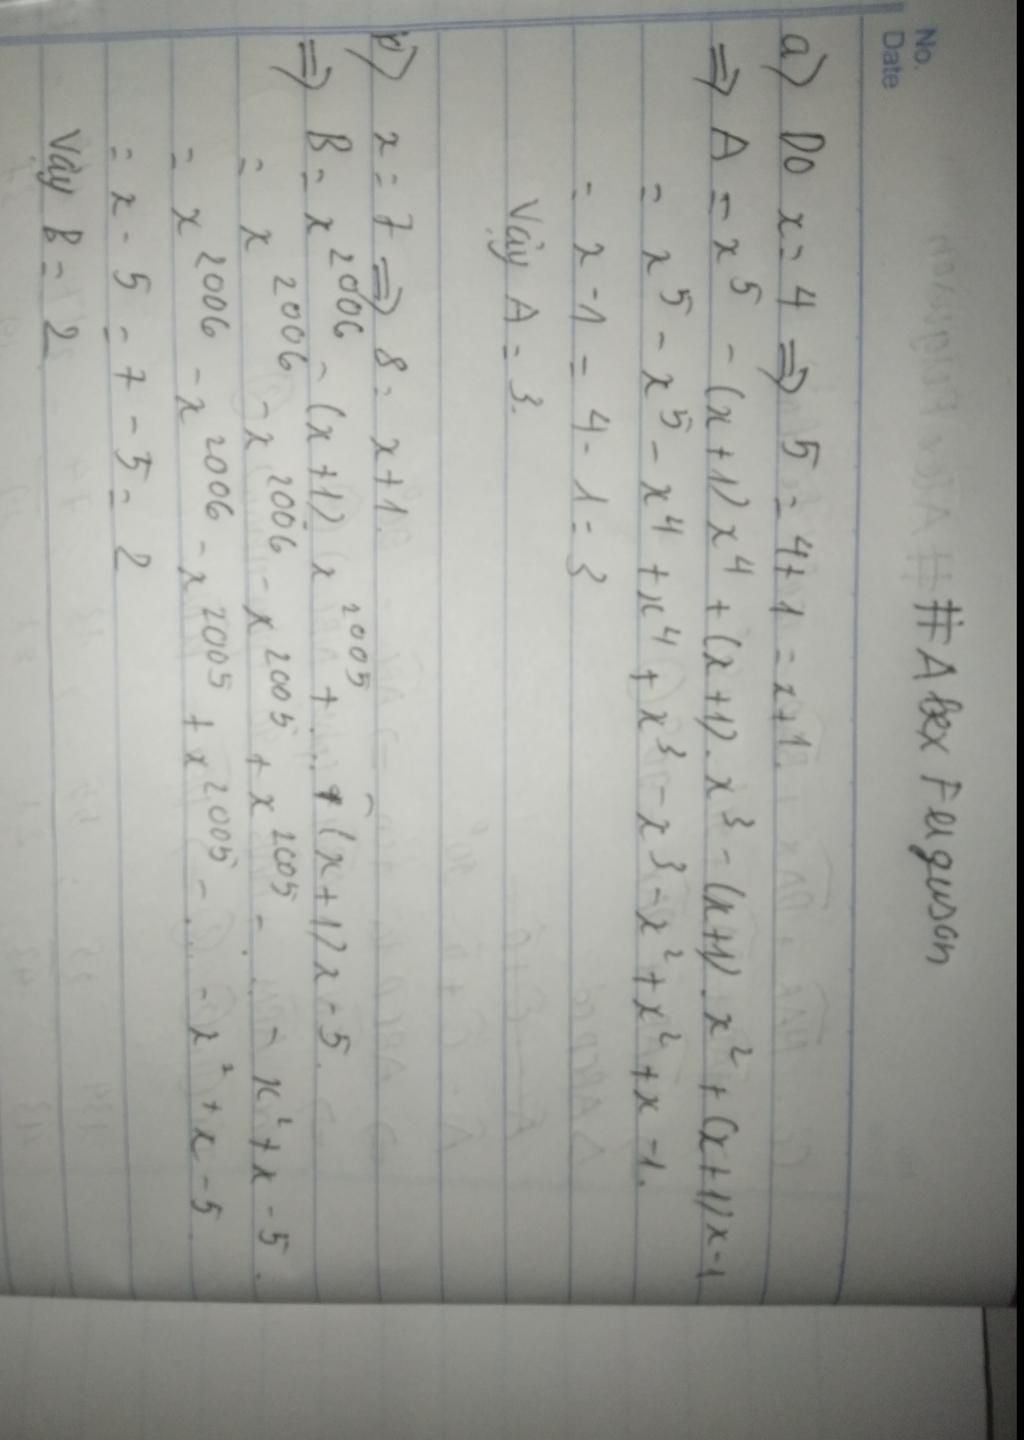 No.
Date
#Alex Ferguson
a) Do x = 4 ⇒ 5 = 4+1 = x+1.
⇒ A = x⁵ - (x+1)x⁴ + (x+1).x³ - (x+1).x² + (x+1)x-1
= x⁵ - x⁵ - x⁴ + x⁴ + x³ - x³ - x² + x² + x - 1.
= x - 1 = 4 - 1 = 3
Vậy A = 3.
b) x = 7 ⇒ 8 = x+1.
⇒ B = x²⁰⁰⁶ - (x+1)x²⁰⁰⁵ + ... + (x+1)x - 5.
= x²⁰⁰⁶ - x²⁰⁰⁶ - x²⁰⁰⁵ + x²⁰⁰⁵ - ... - x² + x - 5.
= x²⁰⁰⁶ - x²⁰⁰⁶ - x²⁰⁰⁵ + x²⁰⁰⁵ - ... - x² + x - 5.
= x - 5 = 7 - 5 = 2
Vậy B = 2